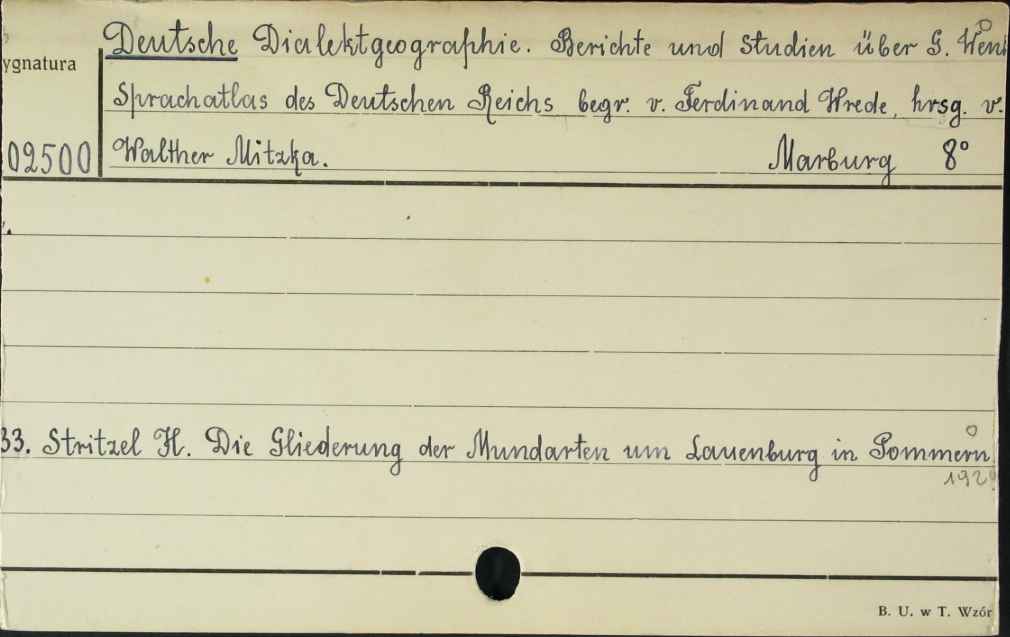 Deutsche Dialektgeographie. Berichte und Studien über G. Wen
ygnatura
Sprachatlas des Deutschen Reichs begr. v. Ferdinand Wrede, hrsg. v.
02500
Walther Mitzka. Marburg 8°
33. Stritzel H. Die Gliederung der Mundarten um Lauenburg in Pommern
B. U. w T. Wzór